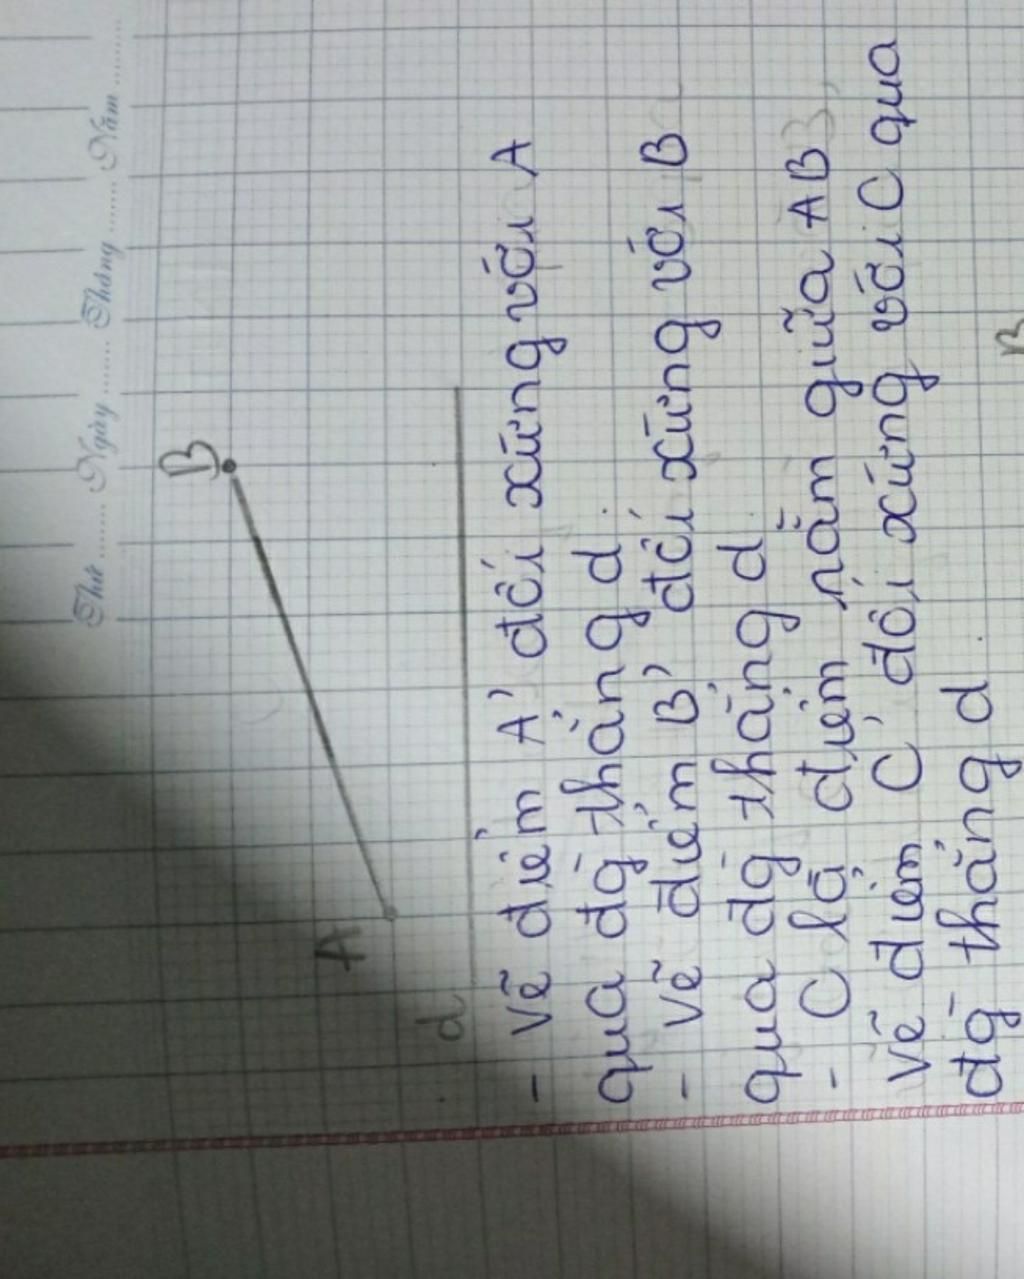 Thứ ........ Ngày ........ Tháng ........ Năm ........
B
A
d
- Vẽ điểm A' đối xứng với A
qua đg thẳng d.
- Vẽ điểm B' đối xứng với B
qua đg thẳng d
- C là điểm nằm giữa AB,
Vẽ điểm C' đối xứng với C qua
đg thẳng d.
B